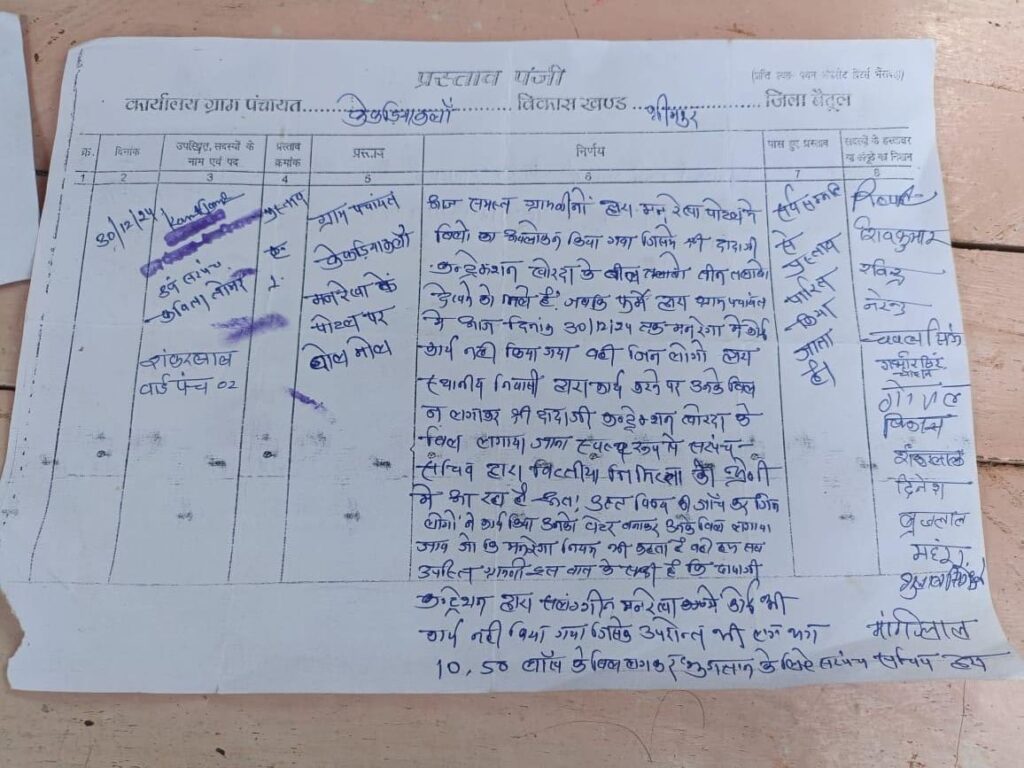 प्रस्ताव पंजी
कार्यालय ग्राम पंचायत.......... विकास खण्ड भीमपुर जिला बैतूल
क्र. दिनांक उपस्थित सदस्यों के नाम एवं पद प्रस्ताव क्रमांक प्रस्ताव निर्णय पास हुए प्रस्ताव सदस्यों के हस्ताक्षर
1 2 3 4 5 6 7 8
30/12/24
उप सरपंच
कविता तोमर
शंकरलाल
वार्ड पंच 02
प्रस्ताव
1.
ग्राम पंचायत
मनरेखा के
पोटल पर
गोल मोल
आज समस्त ग्रामवीनों द्वारा मनरेखा पोटल पे
बिलो का अवलोकन किया गया जिसमे श्री दादाजी
कन्ट्रेक्शन खोरदा के बील
देखने को मिले है. जबकि फर्म द्वारा ग्राम पंचायत
मे आज दिनांक 30/12/24 तक मनरेगा मे कोई
कार्य नही किया गया वही जिन लोगो द्वारा
स्थानीय निवासी द्वारा कार्य करने पर उनके बिल
न लगाकर श्री दादाजी कन्ट्रेक्शन खोरदा के
बिल लगाया जाना स्पष्ट रूप से सरपंच
सचिव द्वारा वित्तीय की श्रेणी
मे आ रहा है अतः उक्त विषय की जाँच कर जिन
लोगों ने कार्य किया उनके बनाकर उनके बिल लगाया
जाय जो कि मनरेगा नियम भी कहता है वही हम सब
उपस्थित ग्रामीण इस बात के साक्षी है कि दादाजी
कन्ट्रेशन द्वारा मनरेखा कोई भी
कार्य नही किया गया जिसके उपरोन्त भी
10.50 लाख के बिल लगाकर भुगतान के लिए सरपंच सचिव द्वारा
सर्व सम्मति
से प्रस्ताव
पारित
किया
जाता
है।
शिवकुमार
रविन्द्र
नरेन्द्र
गोपाल
विकास
शंकरलाल
दिनेश
बृजलाल
महंगू
मांगीलाल